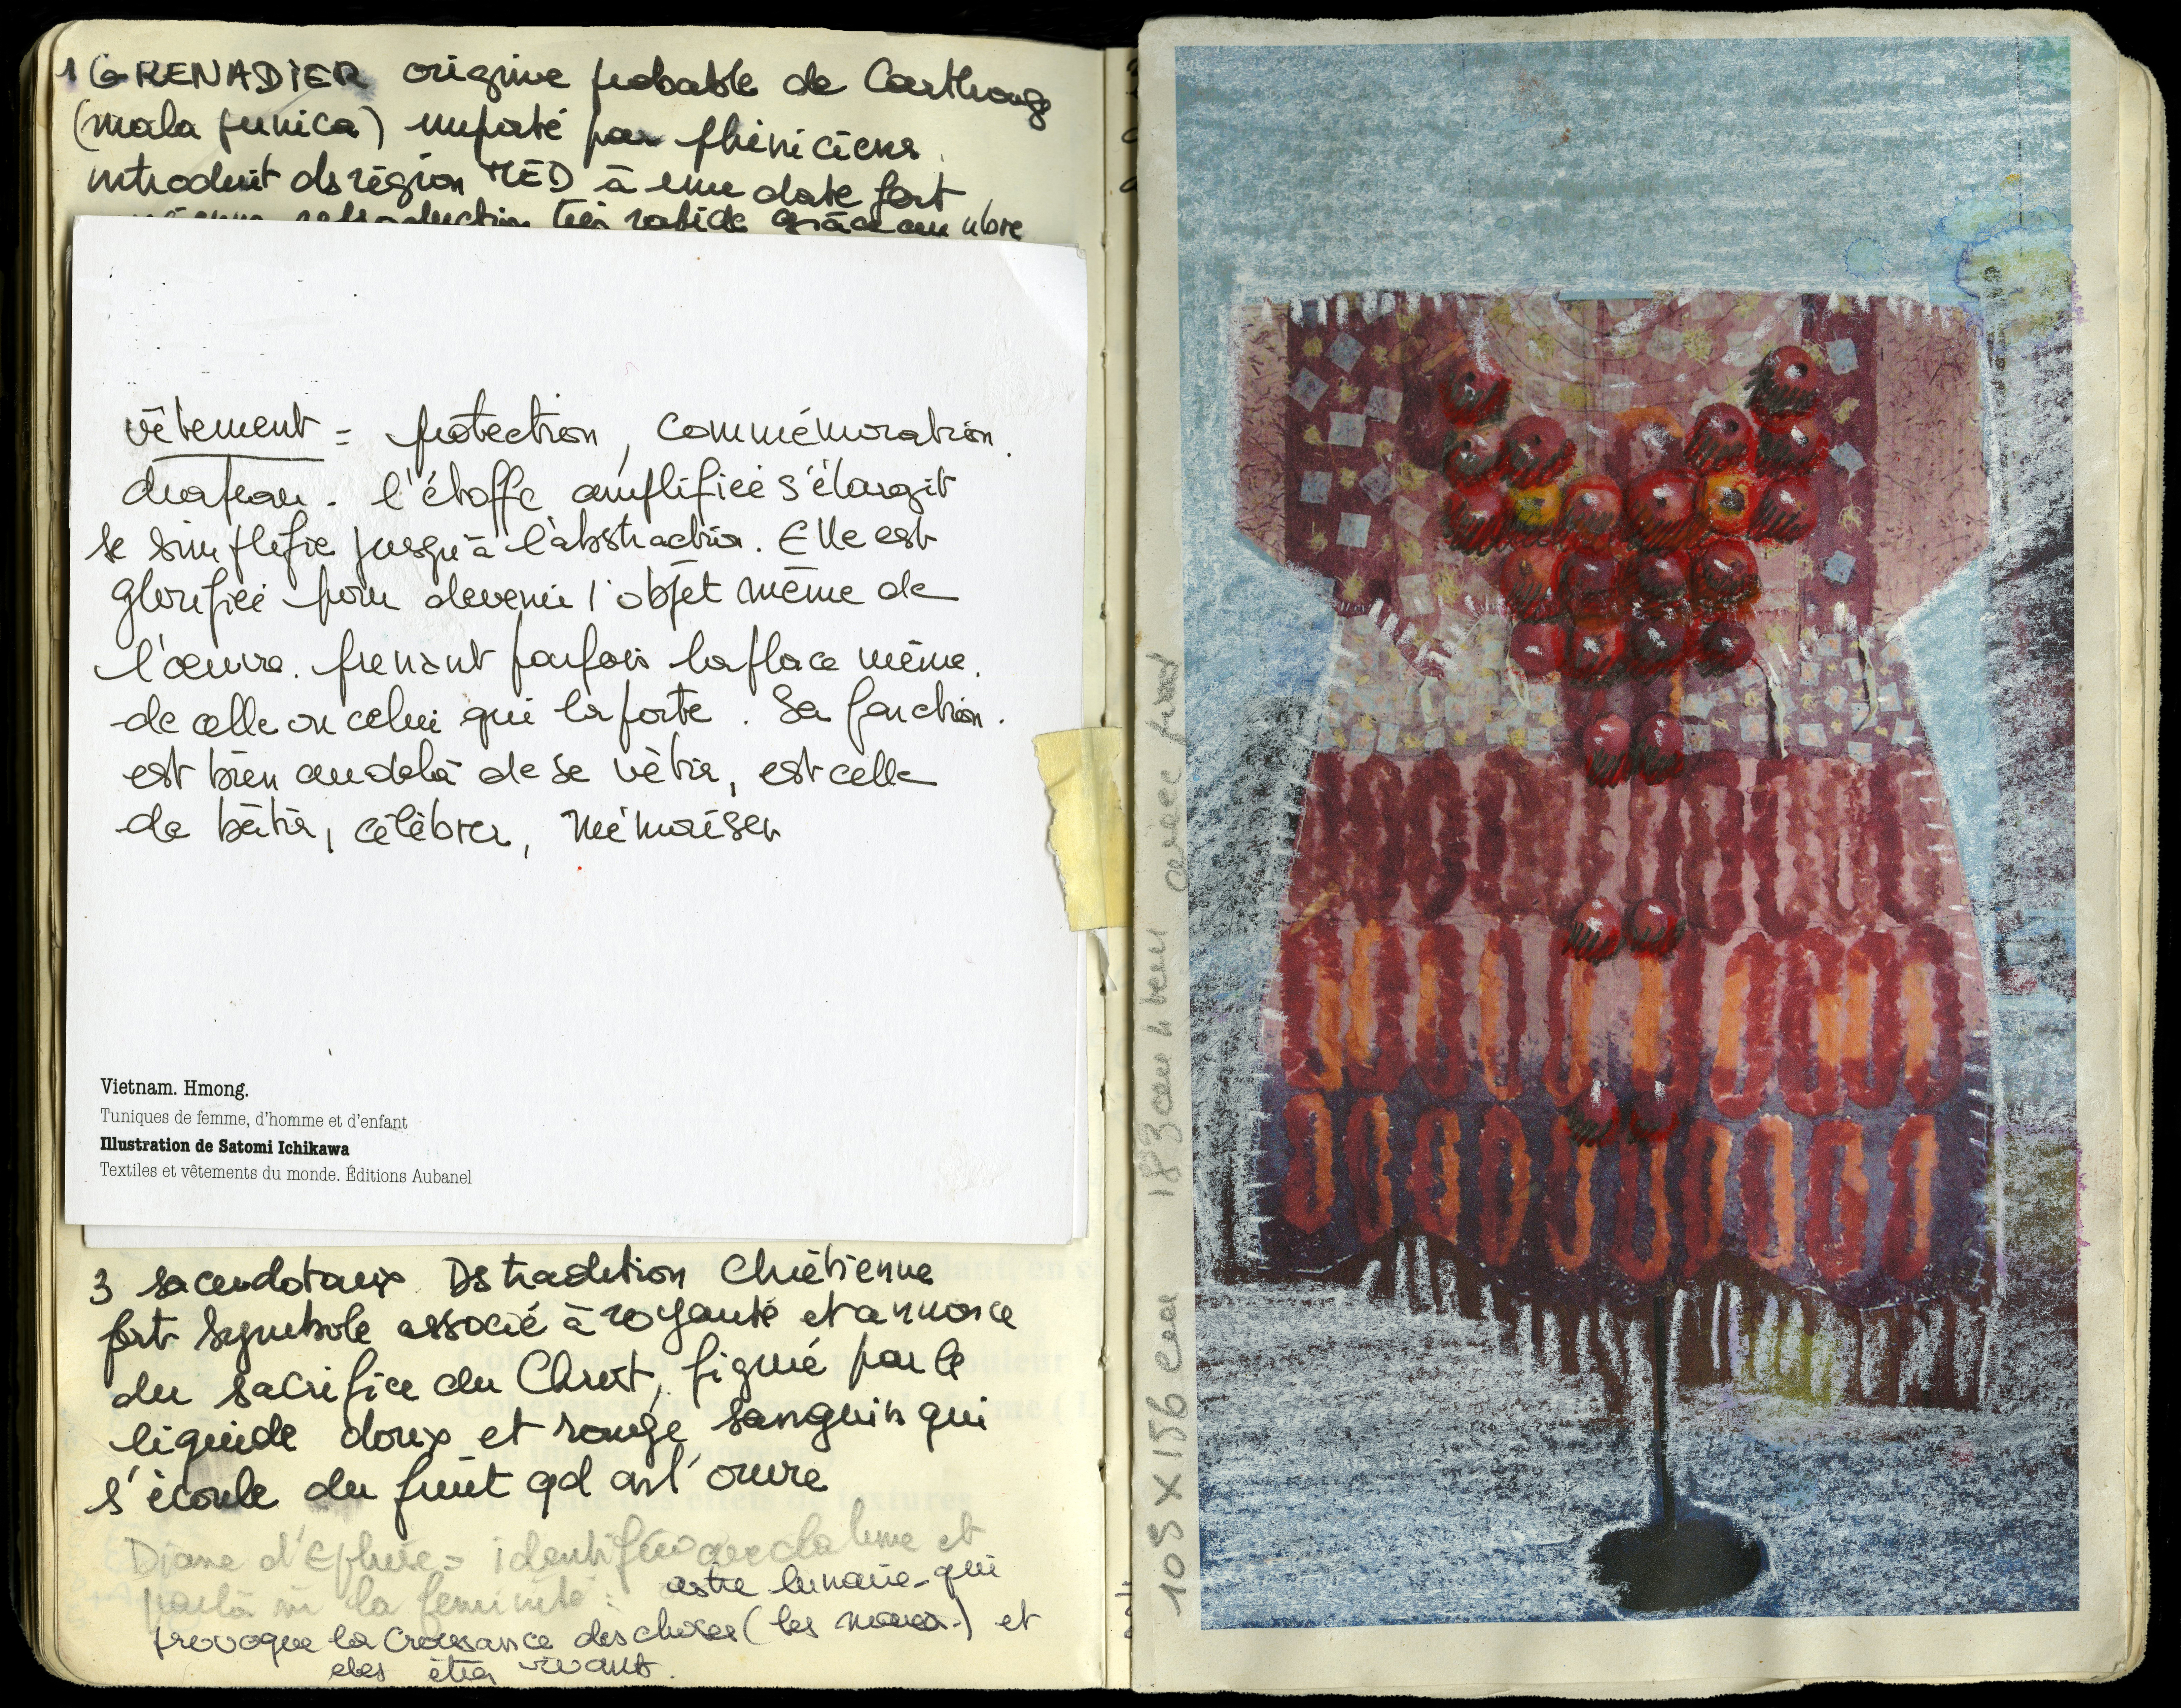 1 GRENADIER origine probable de Carthage
(mala punica) importé par phéniciens
introduit ds région MÉD à une date fort
reproduction très rapide grâce au nbre
vêtement = protection, commémoration.
drapeau. l'étoffe amplifiée s'élargit
se simplifie jusqu'à l'abstraction. Elle est
glorifiée pour devenir l'objet même de
l'œuvre. prenant parfois la place même.
de celle ou celui qui la porte. Sa fonction.
est bien au delà de se vêtir, est celle
de bâtir, célébrer, mémoriser
Vietnam. Hmong.
Tuniques de femme, d'homme et d'enfant
Illustration de Satomi Ichikawa
Textiles et vêtements du monde. Éditions Aubanel
3 sacerdotaux Ds tradition Chrétienne
fort symbole associé à royauté et annonce
du sacrifice du Christ, figuré par le
liquide doux et rouge sanguin qui
s'écoule du fruit qd on l'ouvre
Diane d'Ephèse = identifiée avec la lune et
par là à la féminité :
astre lunaire qui
provoque la croissance des choses (les) et
des êtres vivants.
105 X 156 cm 183 cm h avec pied